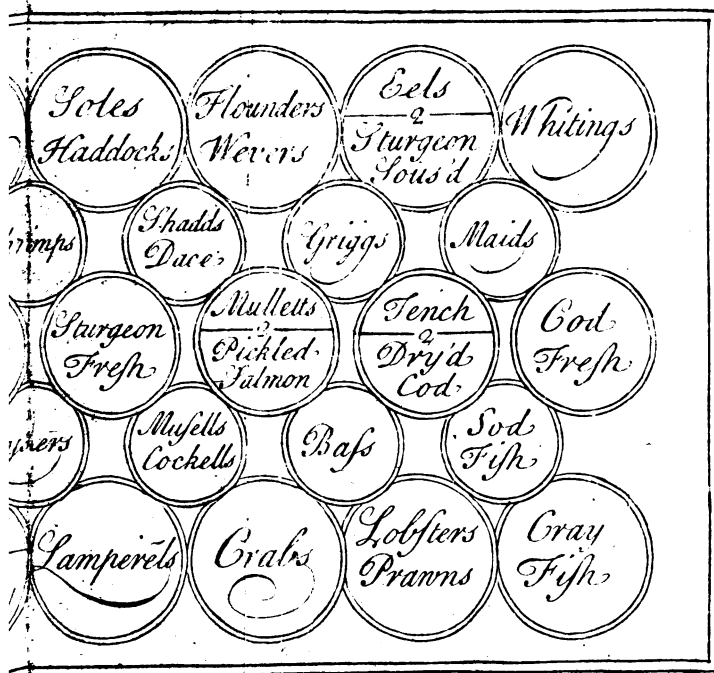 Soles
Haddocks
Flounders
Wevers
Eels
2
Sturgeon
Sous'd
Whitings
Shadds
Dace
Griggs
Maids
Sturgeon
Freſh
Mulletts
2
Pickled
Salmon
Tench
2
Dry'd
Cod
Cod
Freſh
Muſells
Cockells
Baſs
Sod
Fiſh
Lamperēls
Crabs
Lobſters
Prawns
Cray
Fiſh